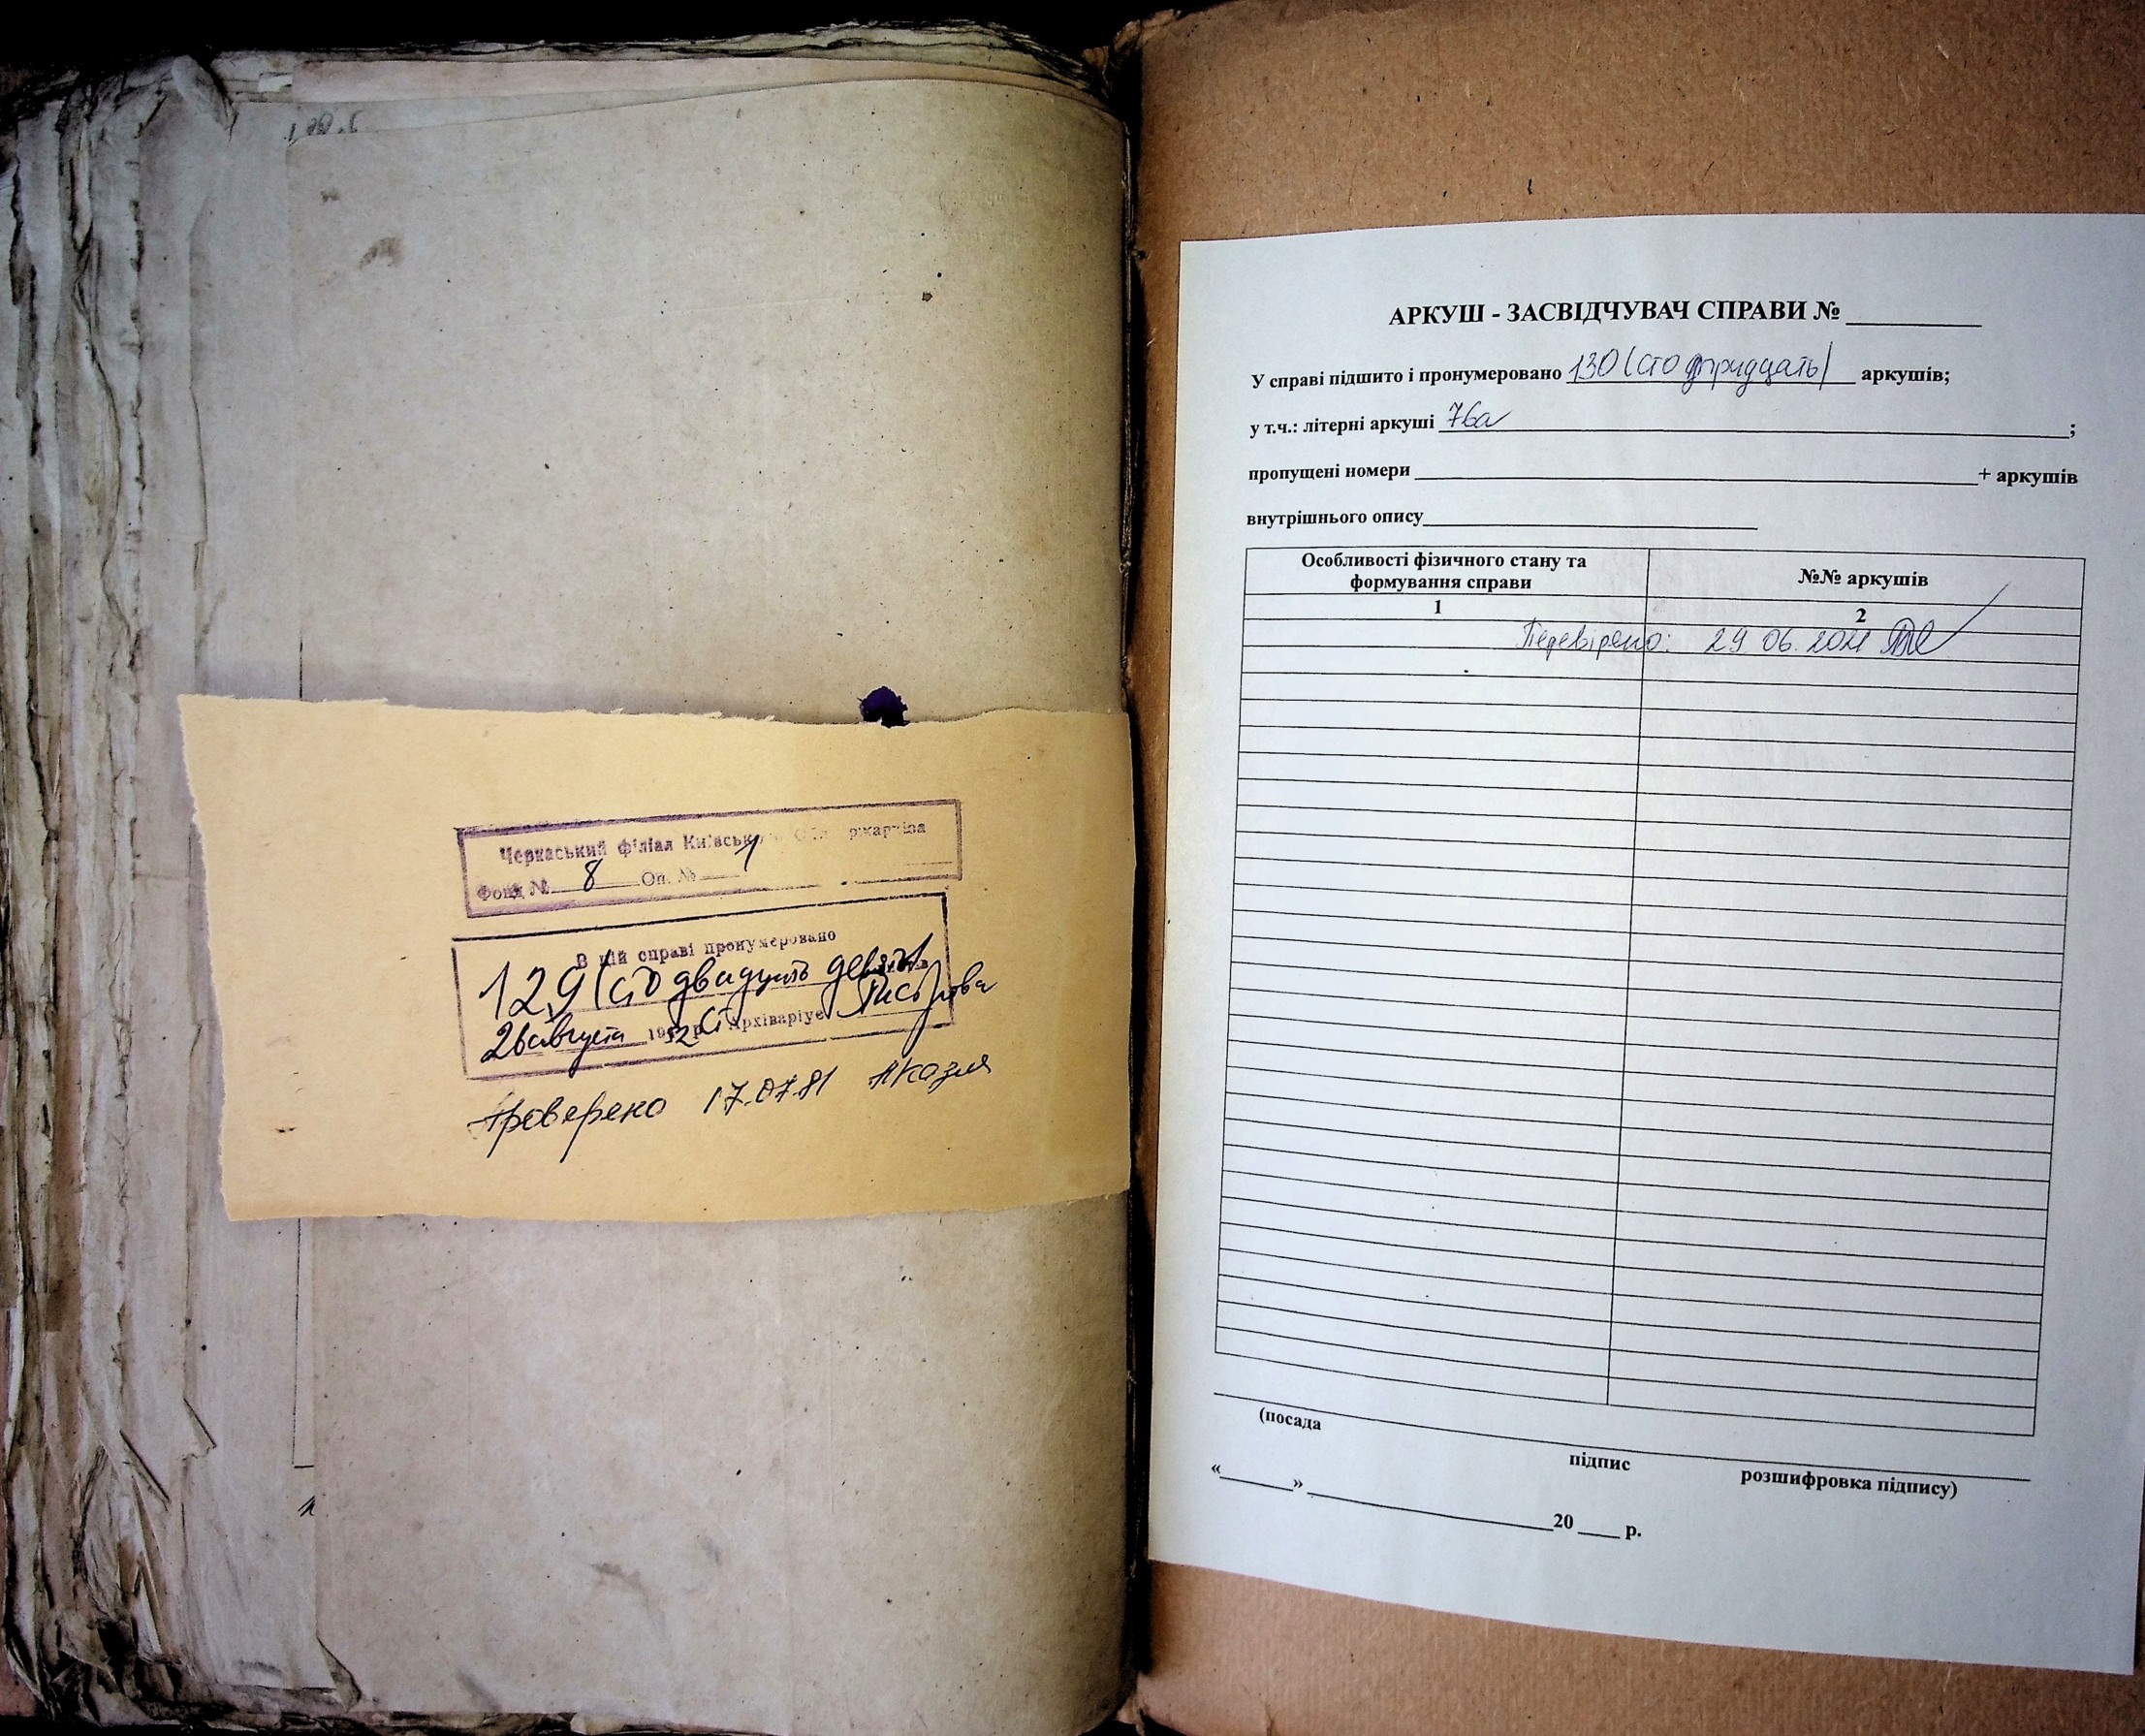 Черкаський філіал Київськ
Фонд № 8 Оп. № 1
В цій справі пронумеровано
129 (сто двадцать девять
26 августа 1952 р. Архіваріус
Проверено 17.07.81
АРКУШ - ЗАСВІДЧУВАЧ СПРАВИ №
У справі підшито і пронумеровано 130 (сто тридцать) аркушів;
у т.ч.: літерні аркуші 76а ;
пропущені номери + аркушів
внутрішнього опису
Особливості фізичного стану та
формування справи
№№ аркушів
1 2
Перевірено: 29 06. 2021
(посада
підпис розшифровка підпису)
« » 20 р.